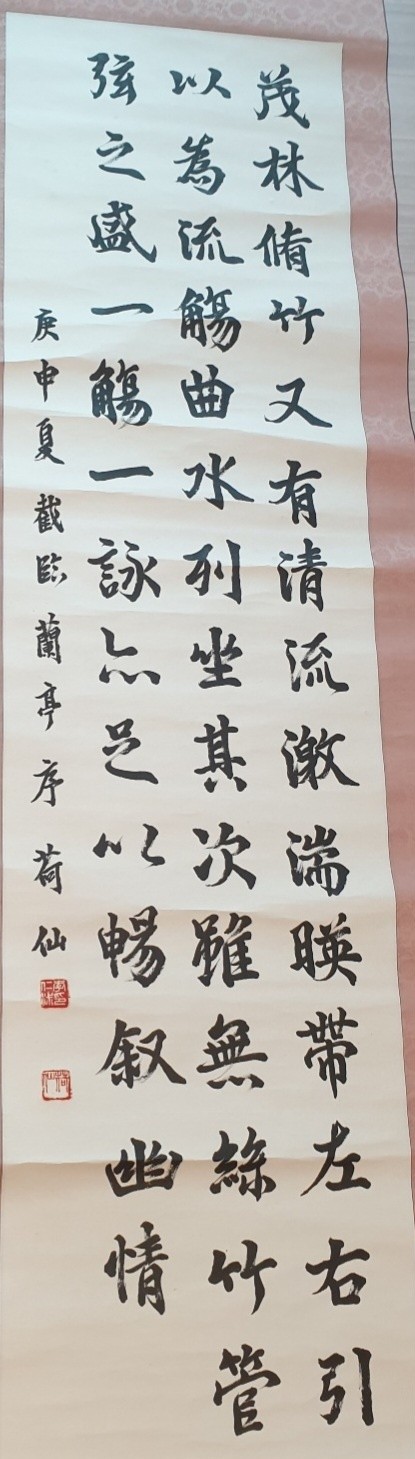 茂林脩竹又有清流激湍暎帶左右引
以為流觴曲水列坐其次雖無絲竹管
弦之盛一觴一詠亦足以暢叙幽情
庚申夏截臨蘭亭序荷仙